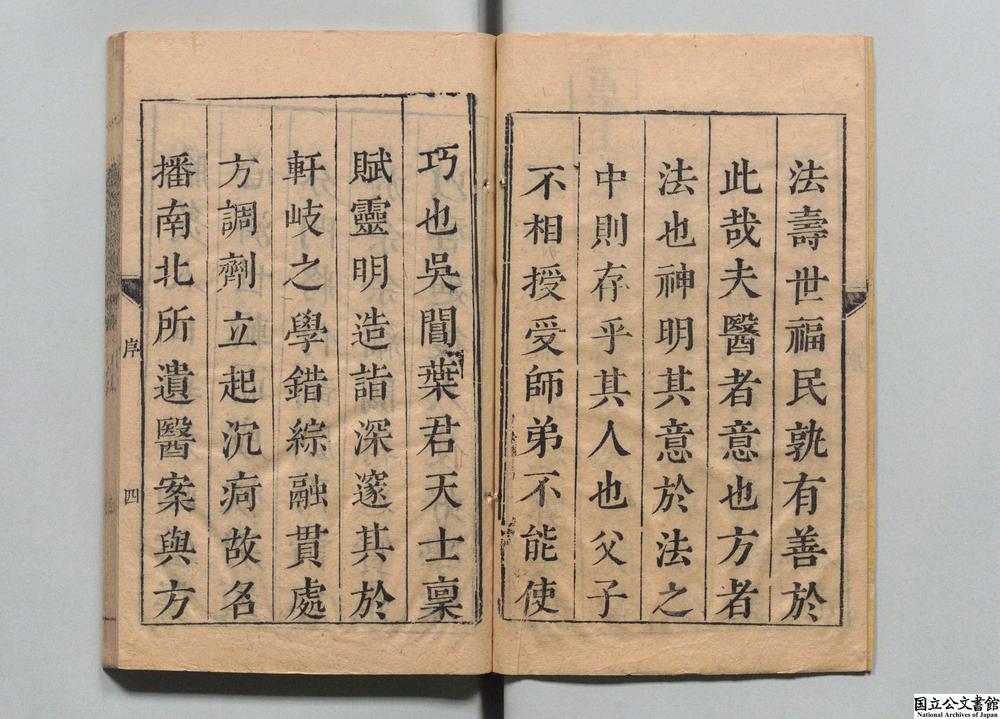 法壽世福民孰有善於
此哉夫醫者意也方者
法也神明其意於法之
中則存乎其人也父子
不相授受師弟不能使
巧也吳閶葉君天士稟
賦靈明造詣深邃其於
軒岐之學錯綜融貫處
方調劑立起沉疴故名
播南北所遺醫案與方
序
四
国立公文書館
National Archives of Japan